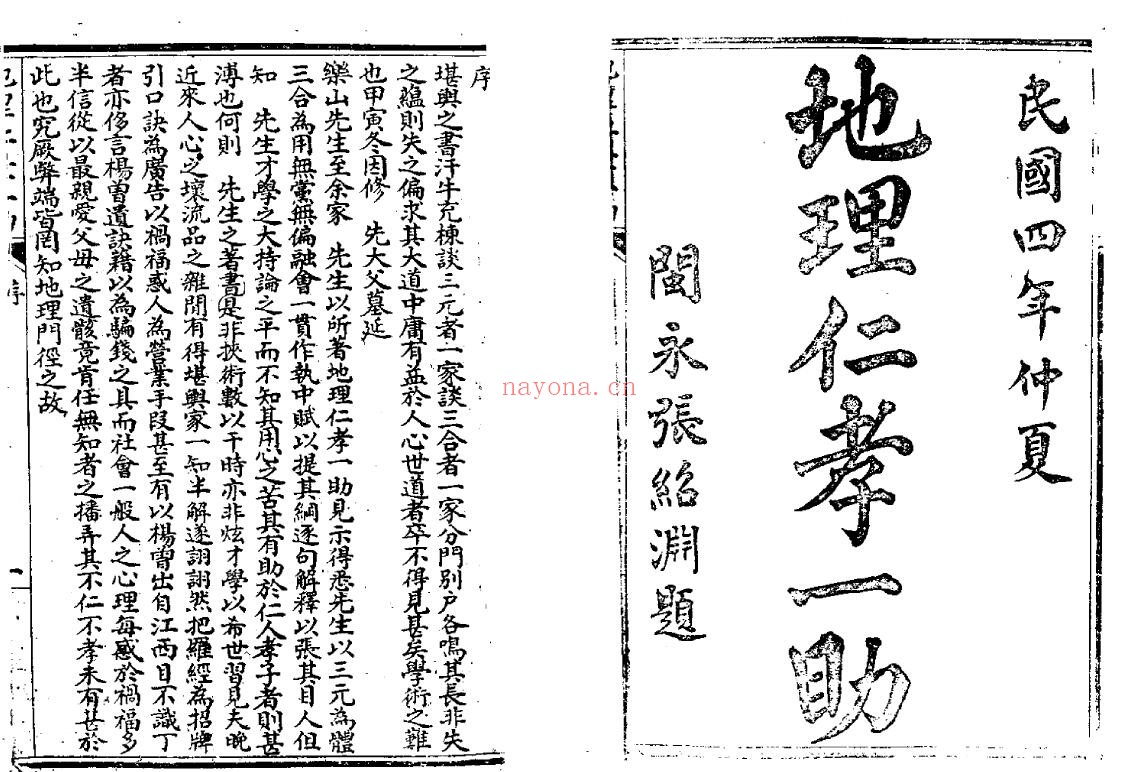 民國四年仲夏
地理仁孝一助
閩永張紹淵題
序
堪輿之書汗牛充棟談三元者一家談三合者一家分門別户各鳴其長非失
之蘊則失之偏求其大道中庸有益於人心世道者卒不得見甚矣學術之難
也甲寅冬因修　先大父墓延
樂山先生至余家　先生以所著地理仁孝一助見示得悉先生以三元為體
三合為用無黨無偏融會一貫作執中賦以提其綱逐句解釋以張其目人但
知　先生才學之大持論之平而不知其用心之苦其有助於仁人孝子者則甚
溥也何則　先生之著書是非挾術數以干時亦非炫才學以希世習見夫晚
近來人心之壞流品之雜間有得堪輿家一知半解遂詡詡然把羅經為招牌
引口訣為廣告以禍福惑人為營業手段甚至有以楊曾出自江西目不識丁
者亦侈言楊曾遺訣藉以為騙錢之具而社會一般人之心理每惑於禍福多
半信從以最親愛父母之遺骸竟肯任無知者之播弄其不仁不孝未有甚於
此也究厥弊端皆罔知地理門徑之故
序
一
nayona.cn